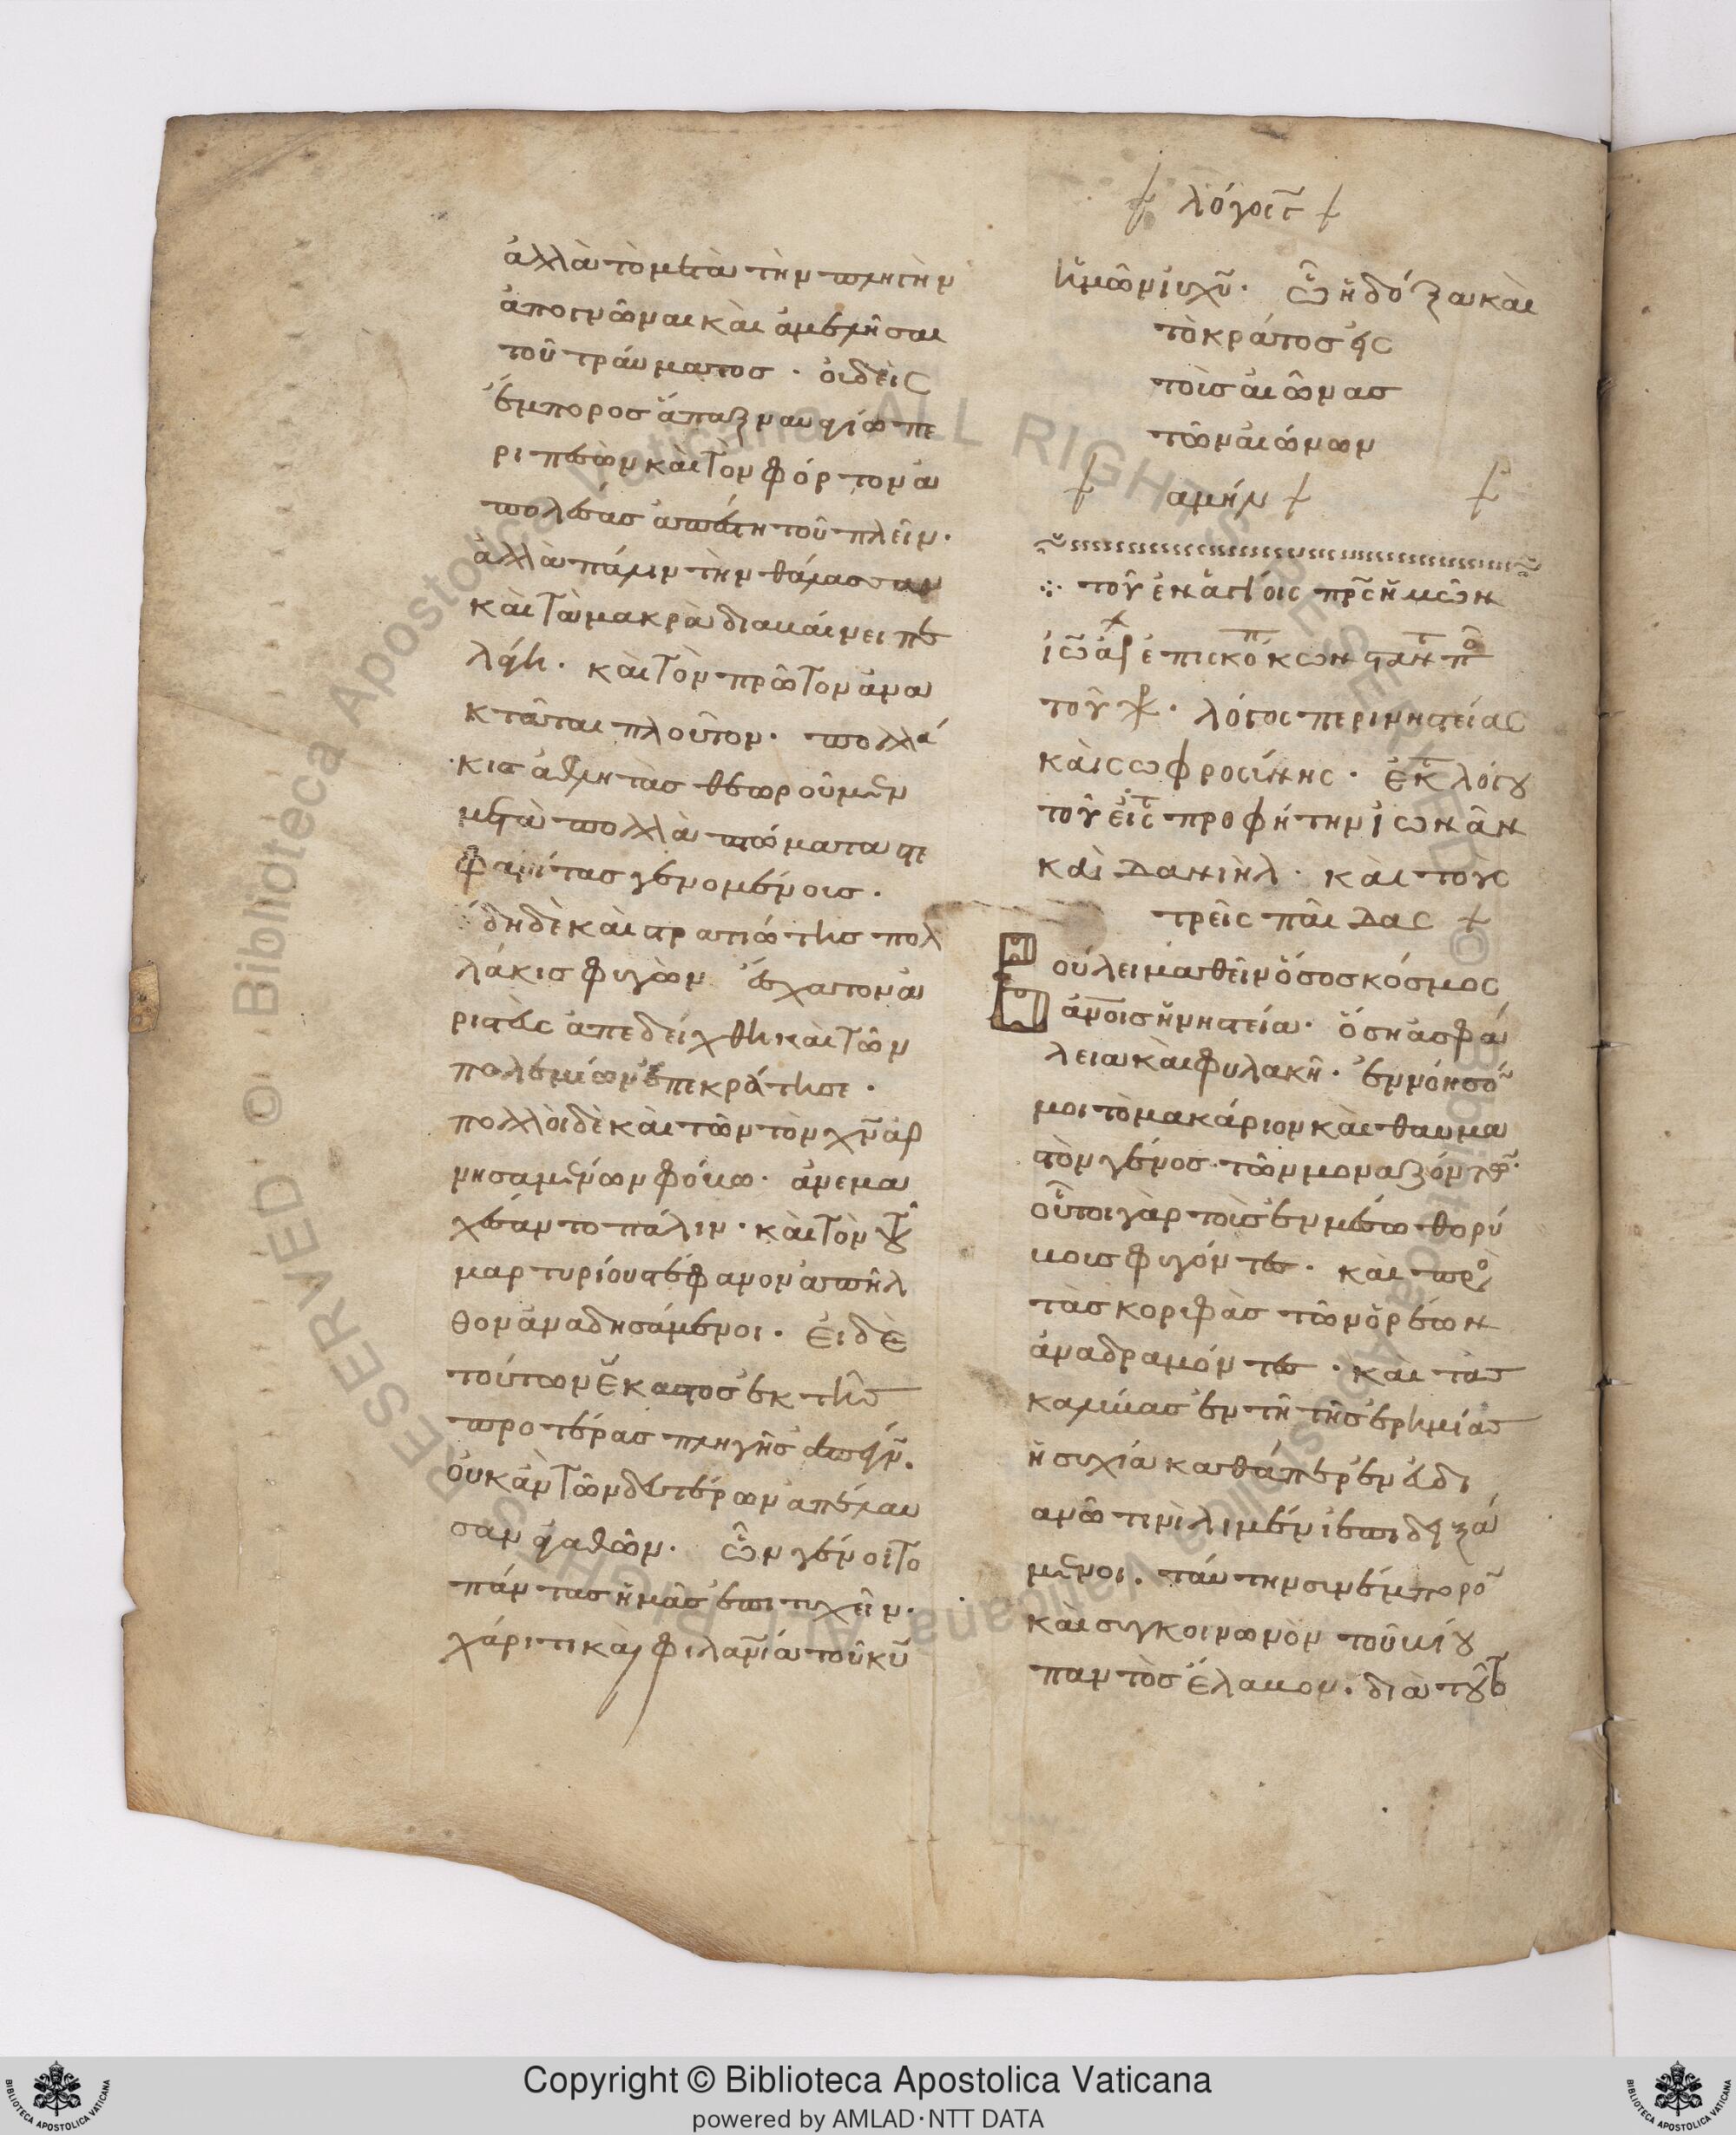 λόγοις
ἀλλὰ τὸ μετὰ τὴν πληγὴν
ἀπογνῶναι καὶ ἀμελῆσαι
τοῦ τράυματοσ · οὐδεὶς
ἔμποροσ ἅπαξ ναυαγίω πε
ριπεσὼν καὶ τὸν φόρτον ἀ
πολέσας ἀπέστη τοῦ πλεῖν ·
ἀλλὰ πάλιν τὴν θάλασσαν
καὶ τὰ μακρὰ διαβαίνει πε
λάγη · καὶ τὸν πρῶτον ἀνα
κτᾶται πλοῦτον · πολλά
κισ ἀθλητὰσ θεωροῦμεν
μετὰ πολλὰ πτώματα στε
φανίτασ γενομένουσ ·
ἤδη δὲ καὶ στρατιώτησ πολ
λάκισ φυγὼν ἔσχατον ἀ
ριστεὺς ἀπεδείχθη καὶ τῶν
πολεμίων ἐπεκράτησε ·
πολλοὶ δὲ καὶ τῶν τὸν χν ἀρ
νησαμένων φόβω · ἀνεμα
χέσαντο πάλιν · καὶ τὸν τοῦ
μαρτυρίου στέφανον ἀπῆλ
θον ἀναδησάμενοι · εἰ δὲ
τούτων ἕκαστοσ ἐκ τῆσ
προτέρασ πληγῆσ
οὐκ ἂν τῶν δευτέρων ἀπέλαυ
σαν ἀγαθῶν · ὧν γένοιτο
πάντασ ἡμᾶσ ἐπιτυχεῖν ·
χάριτι καὶ φιλανία τοῦ κυ
ἡμῶν ιυ χυ · ὧ ἡ δόξα καὶ
τὸ κράτοσ εἰς
τοὺσ αἰῶνασ
τῶν αἰώνων
αμήν
τοῦ ἐν ἁγίοις πρς ἡμῶν
ἰωά ἀρ ἐπισκό κων
τοῦ χρ · λόγος περὶ νηστείας
καὶ σωφροσύνης · ἐκ λόγου
τοῦ εἰς προφήτην ἰωνᾶν
καὶ Δανιὴλ · καὶ τοὺς
τρεῖς παῖδας
Βούλει μαθεῖν ὅσοσ κόσμος
ἀνοισ ἡ νηστεία · ὅση ἀσφά
λεια καὶ φυλακὴ · ἐννόησόν
μοι τὸ μακάριον καὶ θαυμα
στὸν γένοσ τῶν μοναζόντων ·
οὗτοι γὰρ τοὺσ ἐν μέσω θορύ
βουσ φυγόντεσ · καὶ πρὸς
τὰσ κορυφὰσ τῶν ὀρέων
ἀναδραμόντεσ · καὶ τὰσ
καλύβασ ἐν τῆ τῆσ ἐρημίασ
ἡσυχία καθάπερ ἐν εὐδι
ανῶ τινὶ λιμένι
μενοι · ταύτην συνέμπορον
καὶ συγκοινωνὸν τοῦ βίου
παντὸσ ἔλαβον · διὰ τοῦτο